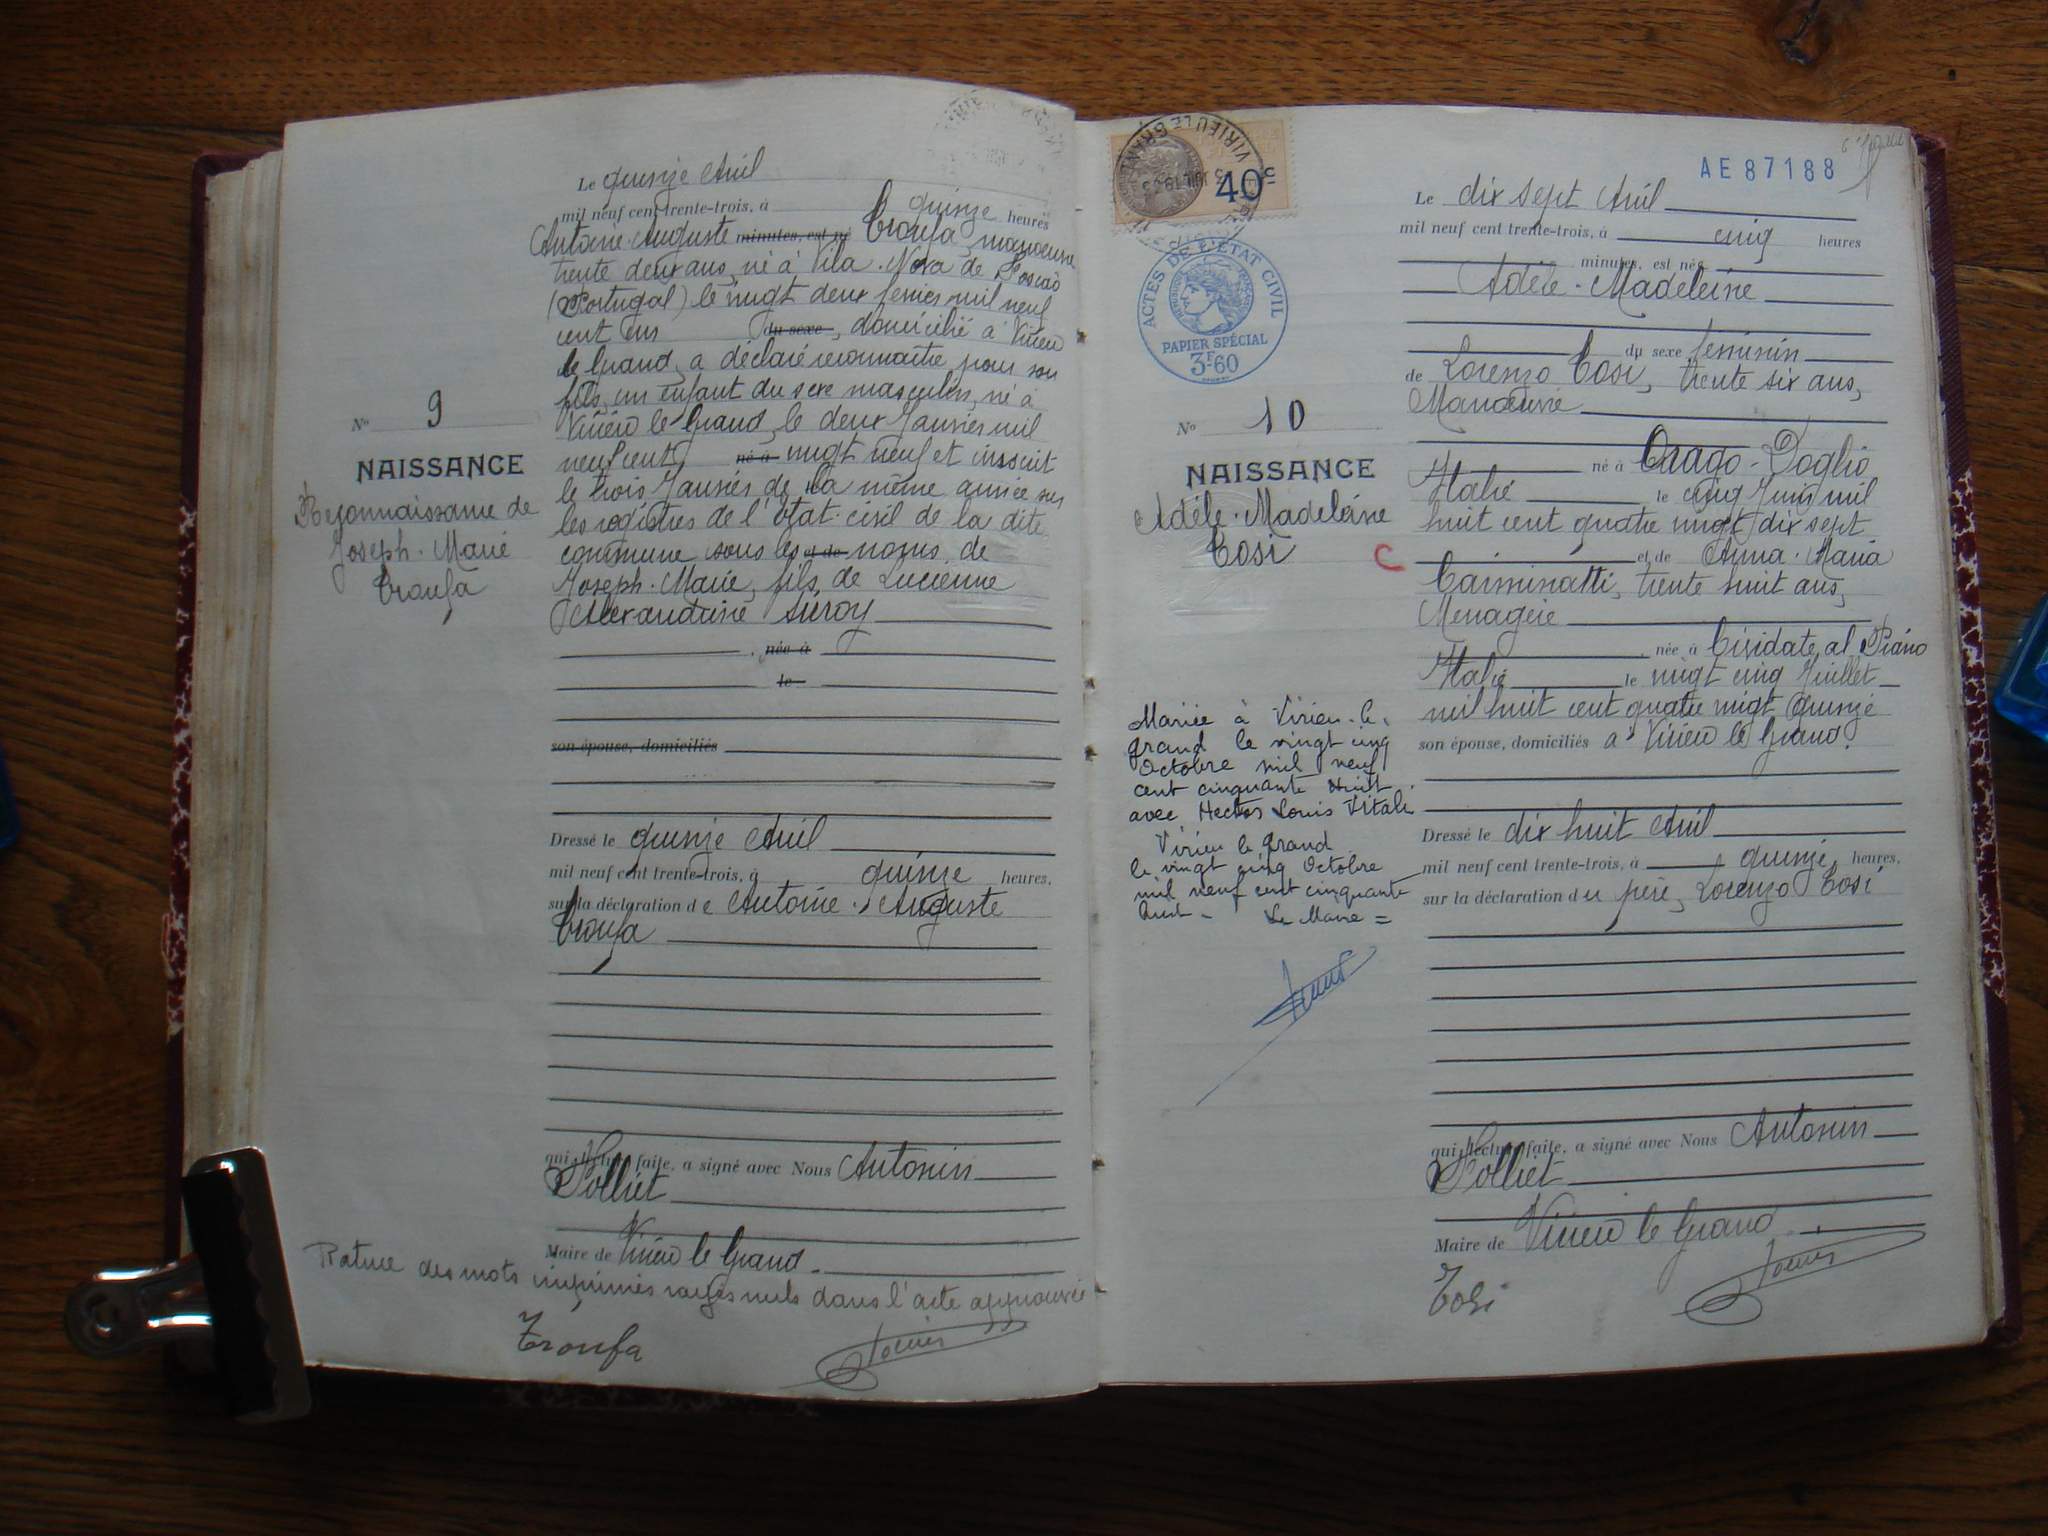 Le quinze Avril
mil neuf cent trente-trois, à quinze heures
Antoine Auguste minutes, est né Troufa manoeuvre
trente deux ans, né à Vila-Nova de
(Portugal) le vingt deux fevrier mil neuf
cent un du sexe, domicilié à Virieu
le Grand, a déclaré reconnaitre pour son
fils, un enfant du sexe masculin, né à
Virieu le Grand, le deux Janvier mil
neuf cent né à vingt neuf et inscrit
le trois Janvier de la même année sur
les registres de l'état-civil de la dite
commune sous les et de noms de
Joseph-Marie, fils de Lucienne
Alexandrine Suroy
née à
le
son épouse, domiciliés
N° 9
NAISSANCE
Reconnaissance de
Joseph-Marie
Troufa
Dressé le quinze Avril
mil neuf cent trente-trois, à quinze heures,
sur la déclaration de Antoine-Auguste
Troufa
qui, lecture faite, a signé avec Nous Antonin
Polliet
Maire de Virieu le Grand
Rature des mots imprimés rayés nuls dans l'acte approuvée
Troufa
VIRIEU LE GRAND
40c
AE 87188
ACTES DE L'ÉTAT CIVIL
PAPIER SPÉCIAL
3F60
Le dix sept Avril
mil neuf cent trente-trois, à cinq heures
minutes, est née
Adèle-Madeleine
du sexe feminin
de Lorenzo Tosi, trente six ans,
Manoeuvre
né à Orago-Doglio
Italie le cinq Juin mil
huit cent quatre vingt dix sept
et de Anna-Maria
Carminatti, trente huit ans,
Menagère
née à Cividate al Piano
Italie le vingt cinq Juillet
mil huit cent quatre vingt quinze
son épouse, domiciliés à Virieu le Grand.
N° 10
NAISSANCE
Adèle-Madeleine
Tosi
C
Mariée à Virieu-le-
grand le vingt cinq
Octobre mil neuf
cent cinquante huit
avec Hector Louis Vitali
Virieu le grand
le vingt cinq Octobre
mil neuf cent cinquante
huit - Le Maire =
Dressé le dix huit Avril
mil neuf cent trente-trois, à quinze heures,
sur la déclaration du père, Lorenzo Tosi
qui, lecture faite, a signé avec Nous Antonin
Polliet
Maire de Virieu le Grand
Tosi